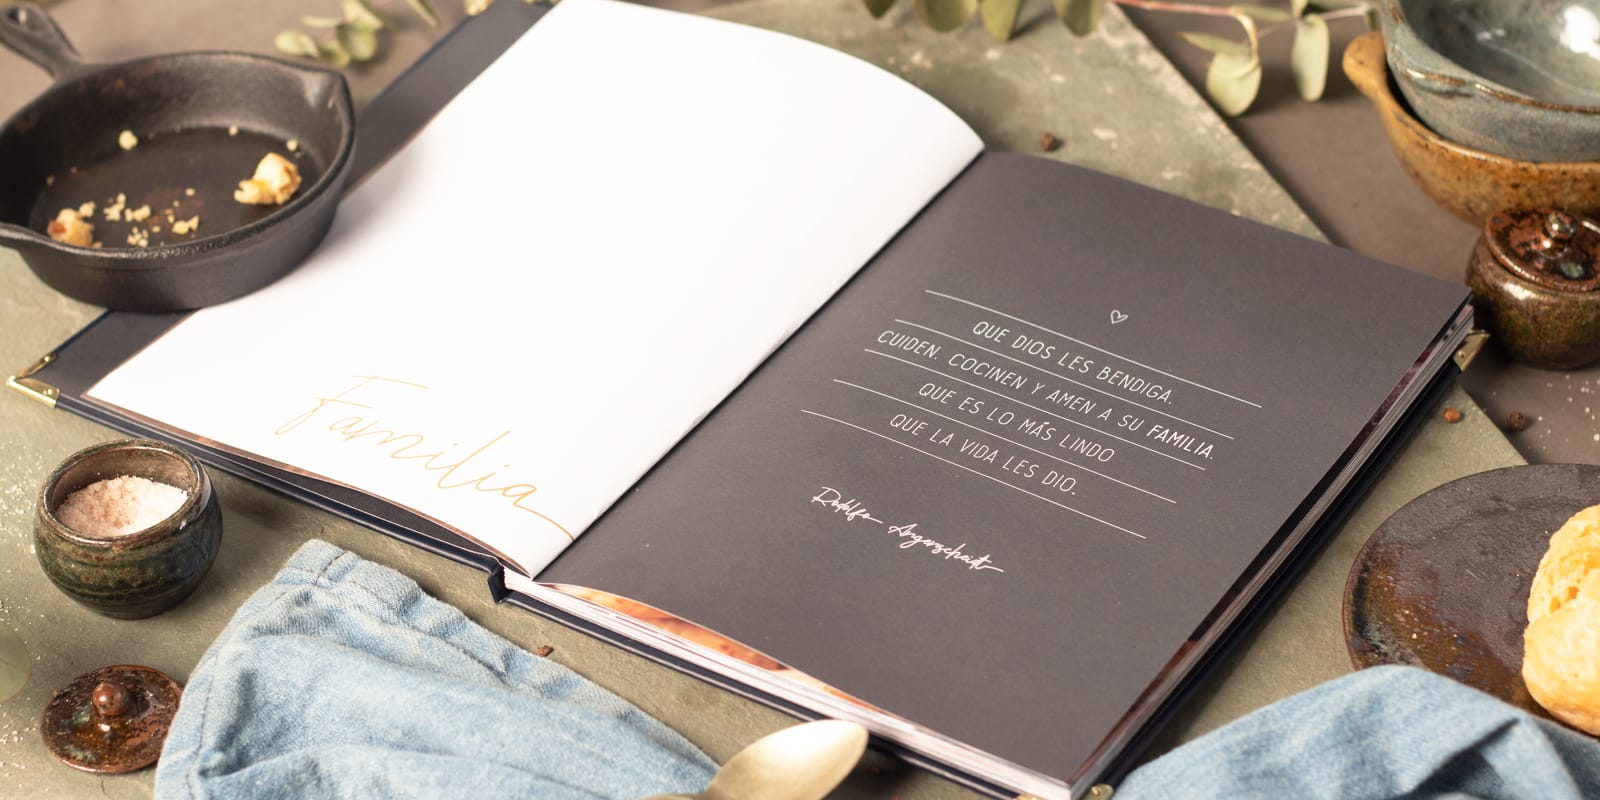 Familia
QUE DIOS LES BENDIGA.
CUIDEN, COCINEN Y AMEN A SU FAMILIA.
QUE ES LO MÁS LINDO
QUE LA VIDA LES DIO.
Rodolfo Angenscheidt